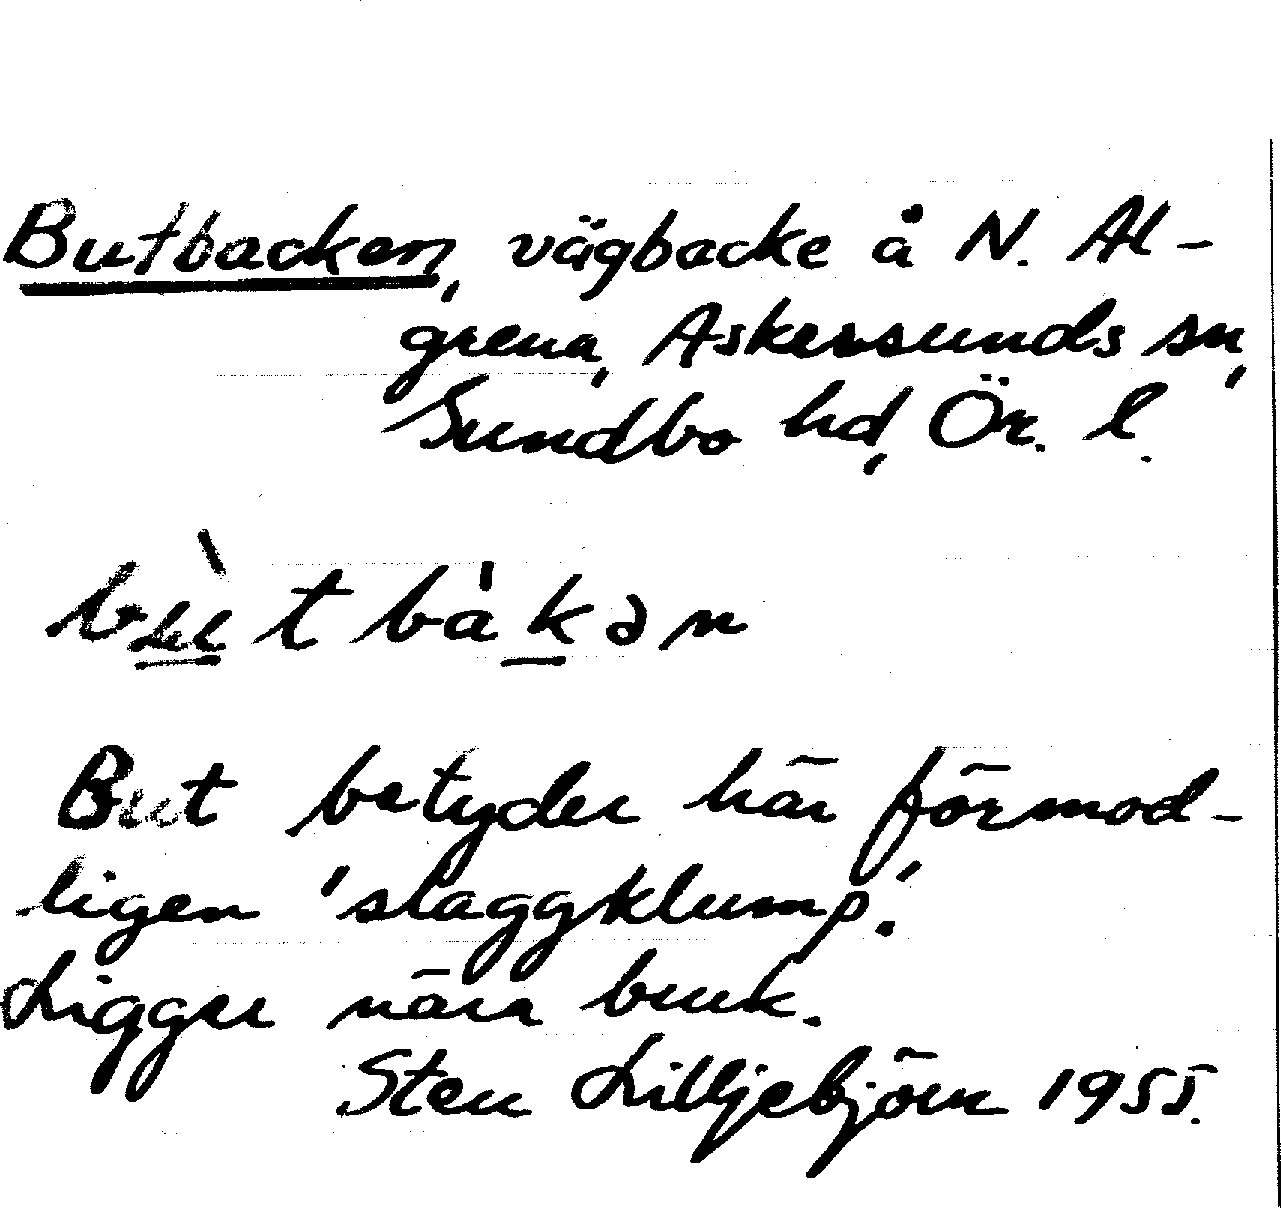 Butbacken, vägbacke å N. Al-
grena, Askersunds sn,
Sundbo hd, Ör. l.
bu̲t bak̲ən
But betyder här förmod-
ligen 'slaggklump'.
Ligger nära bruk.
Sten Lilljebjörn 1955.